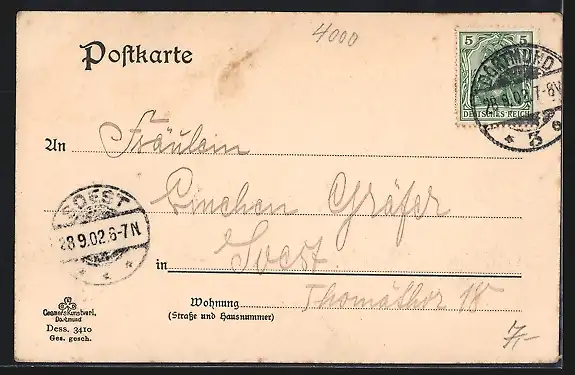 4000
Postkarte
5 5
DEUTSCHES REICH
DORTMUND
28.9.02. 7-8V
* 3 c
An Fräulein
Linchen Gräfer
SOEST
28.9.02.6-7N
* * *
in Soest
Wohnung Thomäthor 18
(Straße und Hausnummer)
Cramers Kunstverl.
Dortmund
Dess. 3410
Ges. gesch.
7,-